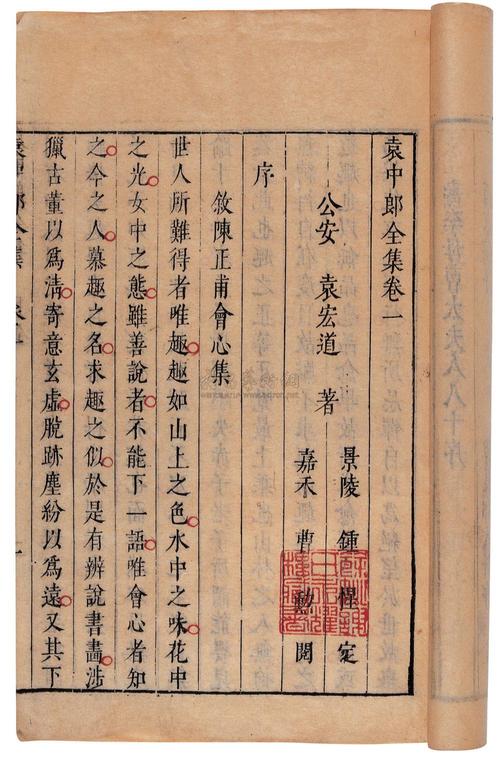 袁中郎全集卷一
景陵 鍾惺 定
公安 袁宏道 著
嘉禾 曹勳 閱
序
敘陳正甫會心集
世人所難得者唯趣趣如山上之色水中之味花中
之光女中之態雖善說者不能下一語唯會心者知
之今之人慕趣之名求趣之似於是有辨說書畵涉
獵古董以爲清寄意玄虛脫跡塵紛以爲遠又其下